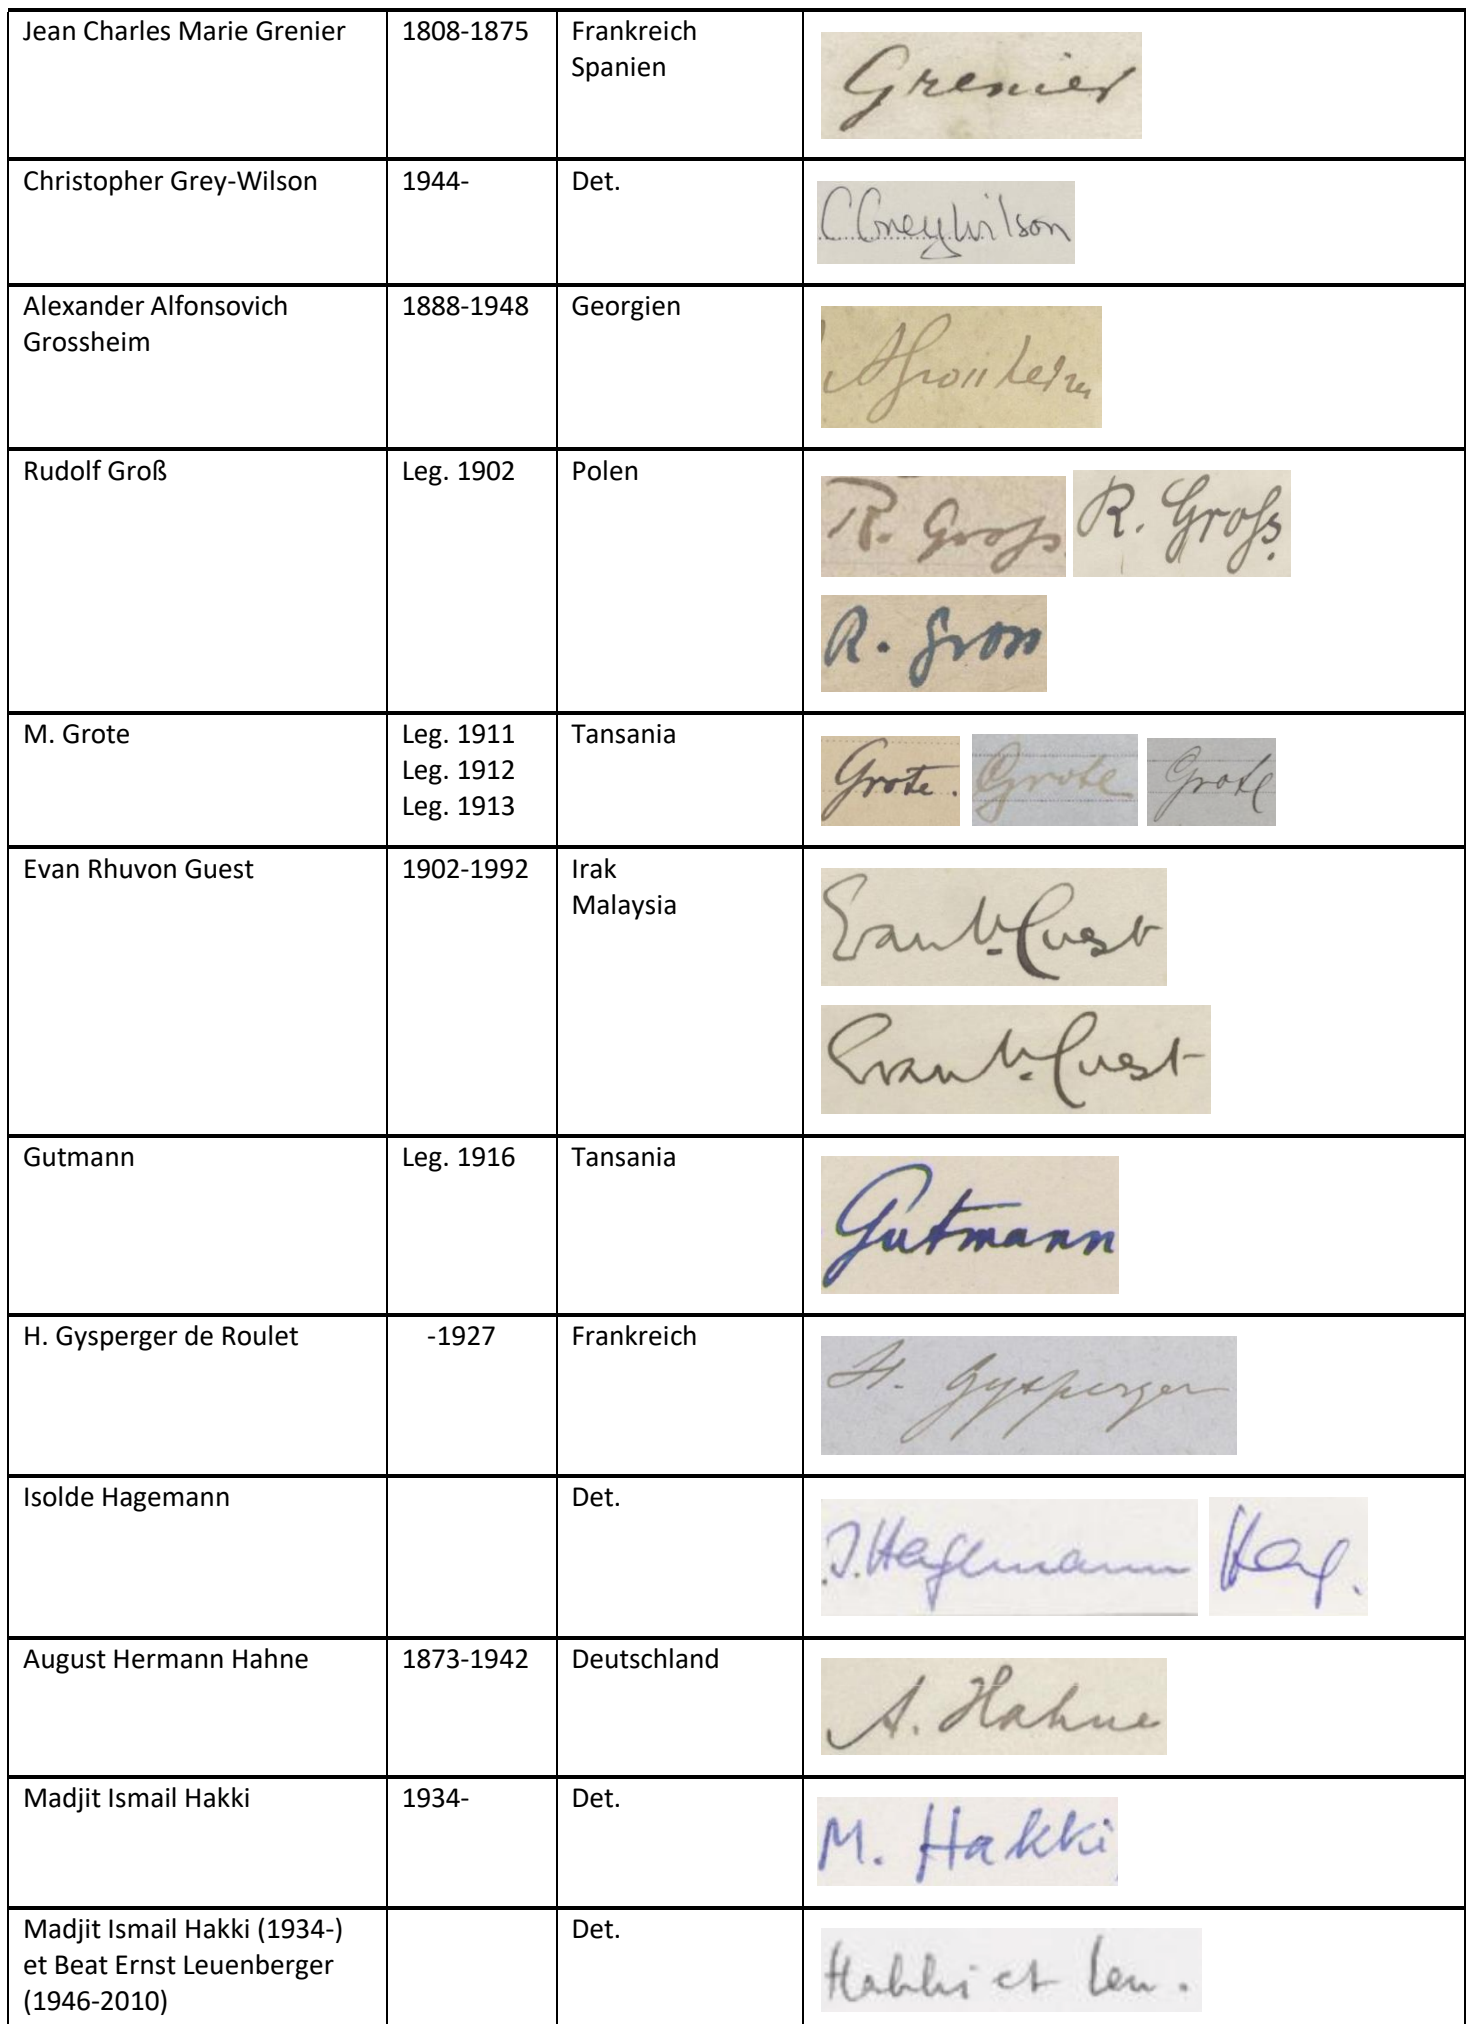 Jean Charles Marie Grenier 1808-1875 Frankreich
Spanien
Grenier
Christopher Grey-Wilson 1944- Det.
C Grey Wilson
Alexander Alfonsovich 1888-1948 Georgien
Grossheim
AGrossheim
Rudolf Groß Leg. 1902 Polen
R. Groß. R. Groß.
R. Gross
M. Grote Leg. 1911 Tansania
Leg. 1912
Leg. 1913
Grote. Grote Grote
Evan Rhuvon Guest 1902-1992 Irak
Malaysia
Evan R. Guest
Evan R. Guest
Gutmann Leg. 1916 Tansania
Gutmann
H. Gysperger de Roulet -1927 Frankreich
H. Gysperger
Isolde Hagemann Det.
I. Hagemann Hag.
August Hermann Hahne 1873-1942 Deutschland
A. Hahne
Madjit Ismail Hakki 1934- Det.
M. Hakki
Madjit Ismail Hakki (1934-) Det.
et Beat Ernst Leuenberger
(1946-2010)
Hakki et Leu.